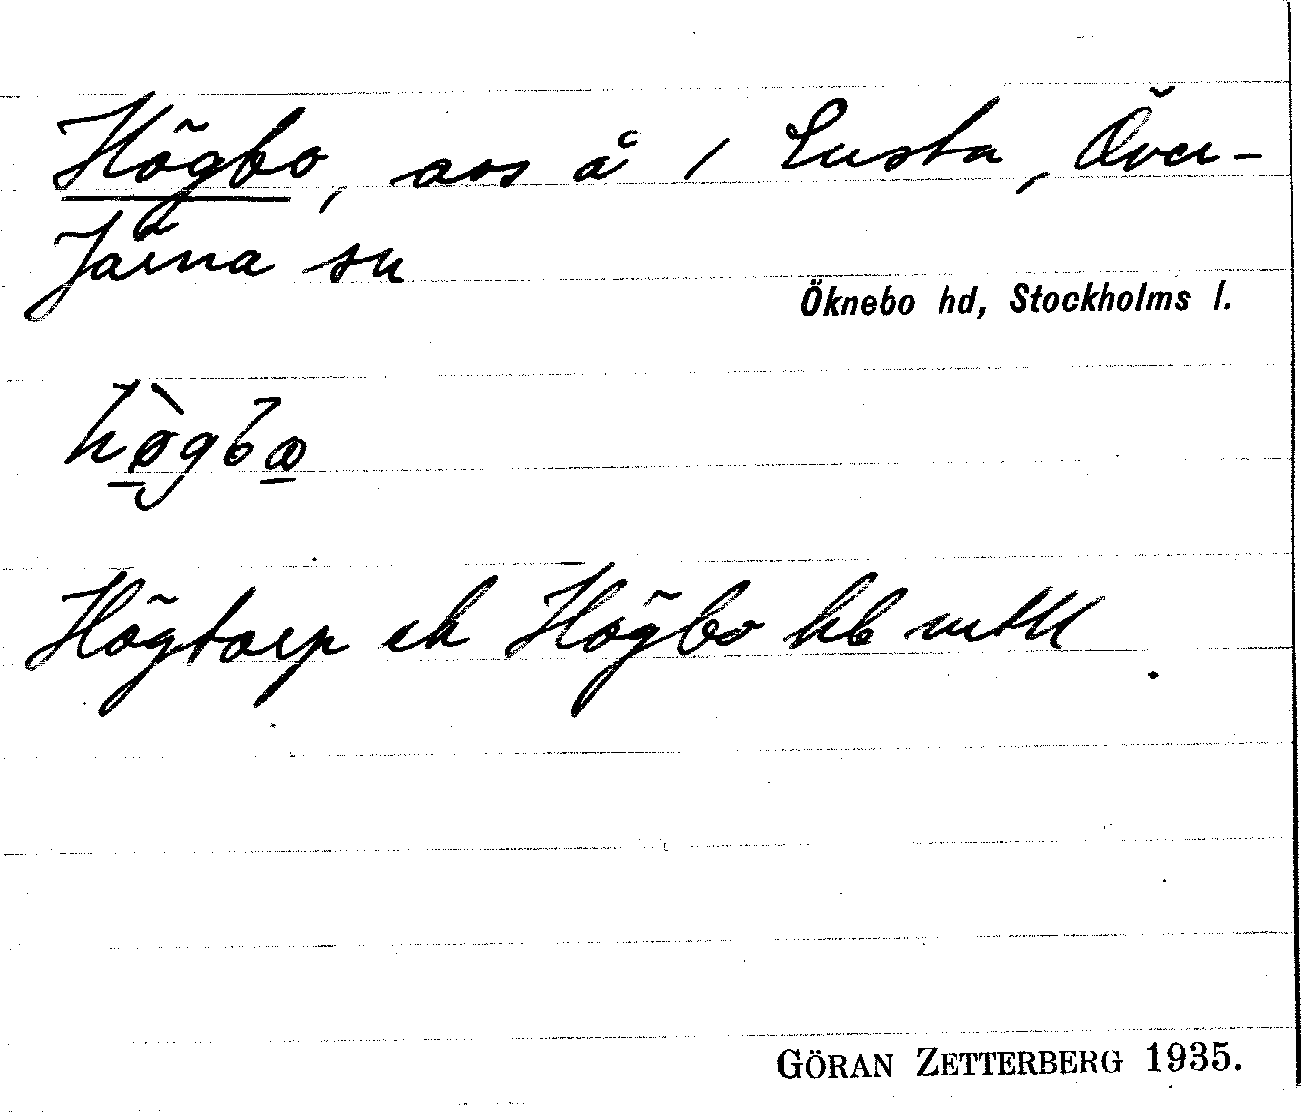 Högbo, avs å / Lusta, Över-
Järna sn
Öknebo hd, Stockholms l.
Högtorp el Högbo hb
GÖRAN ZETTERBERG 1935.